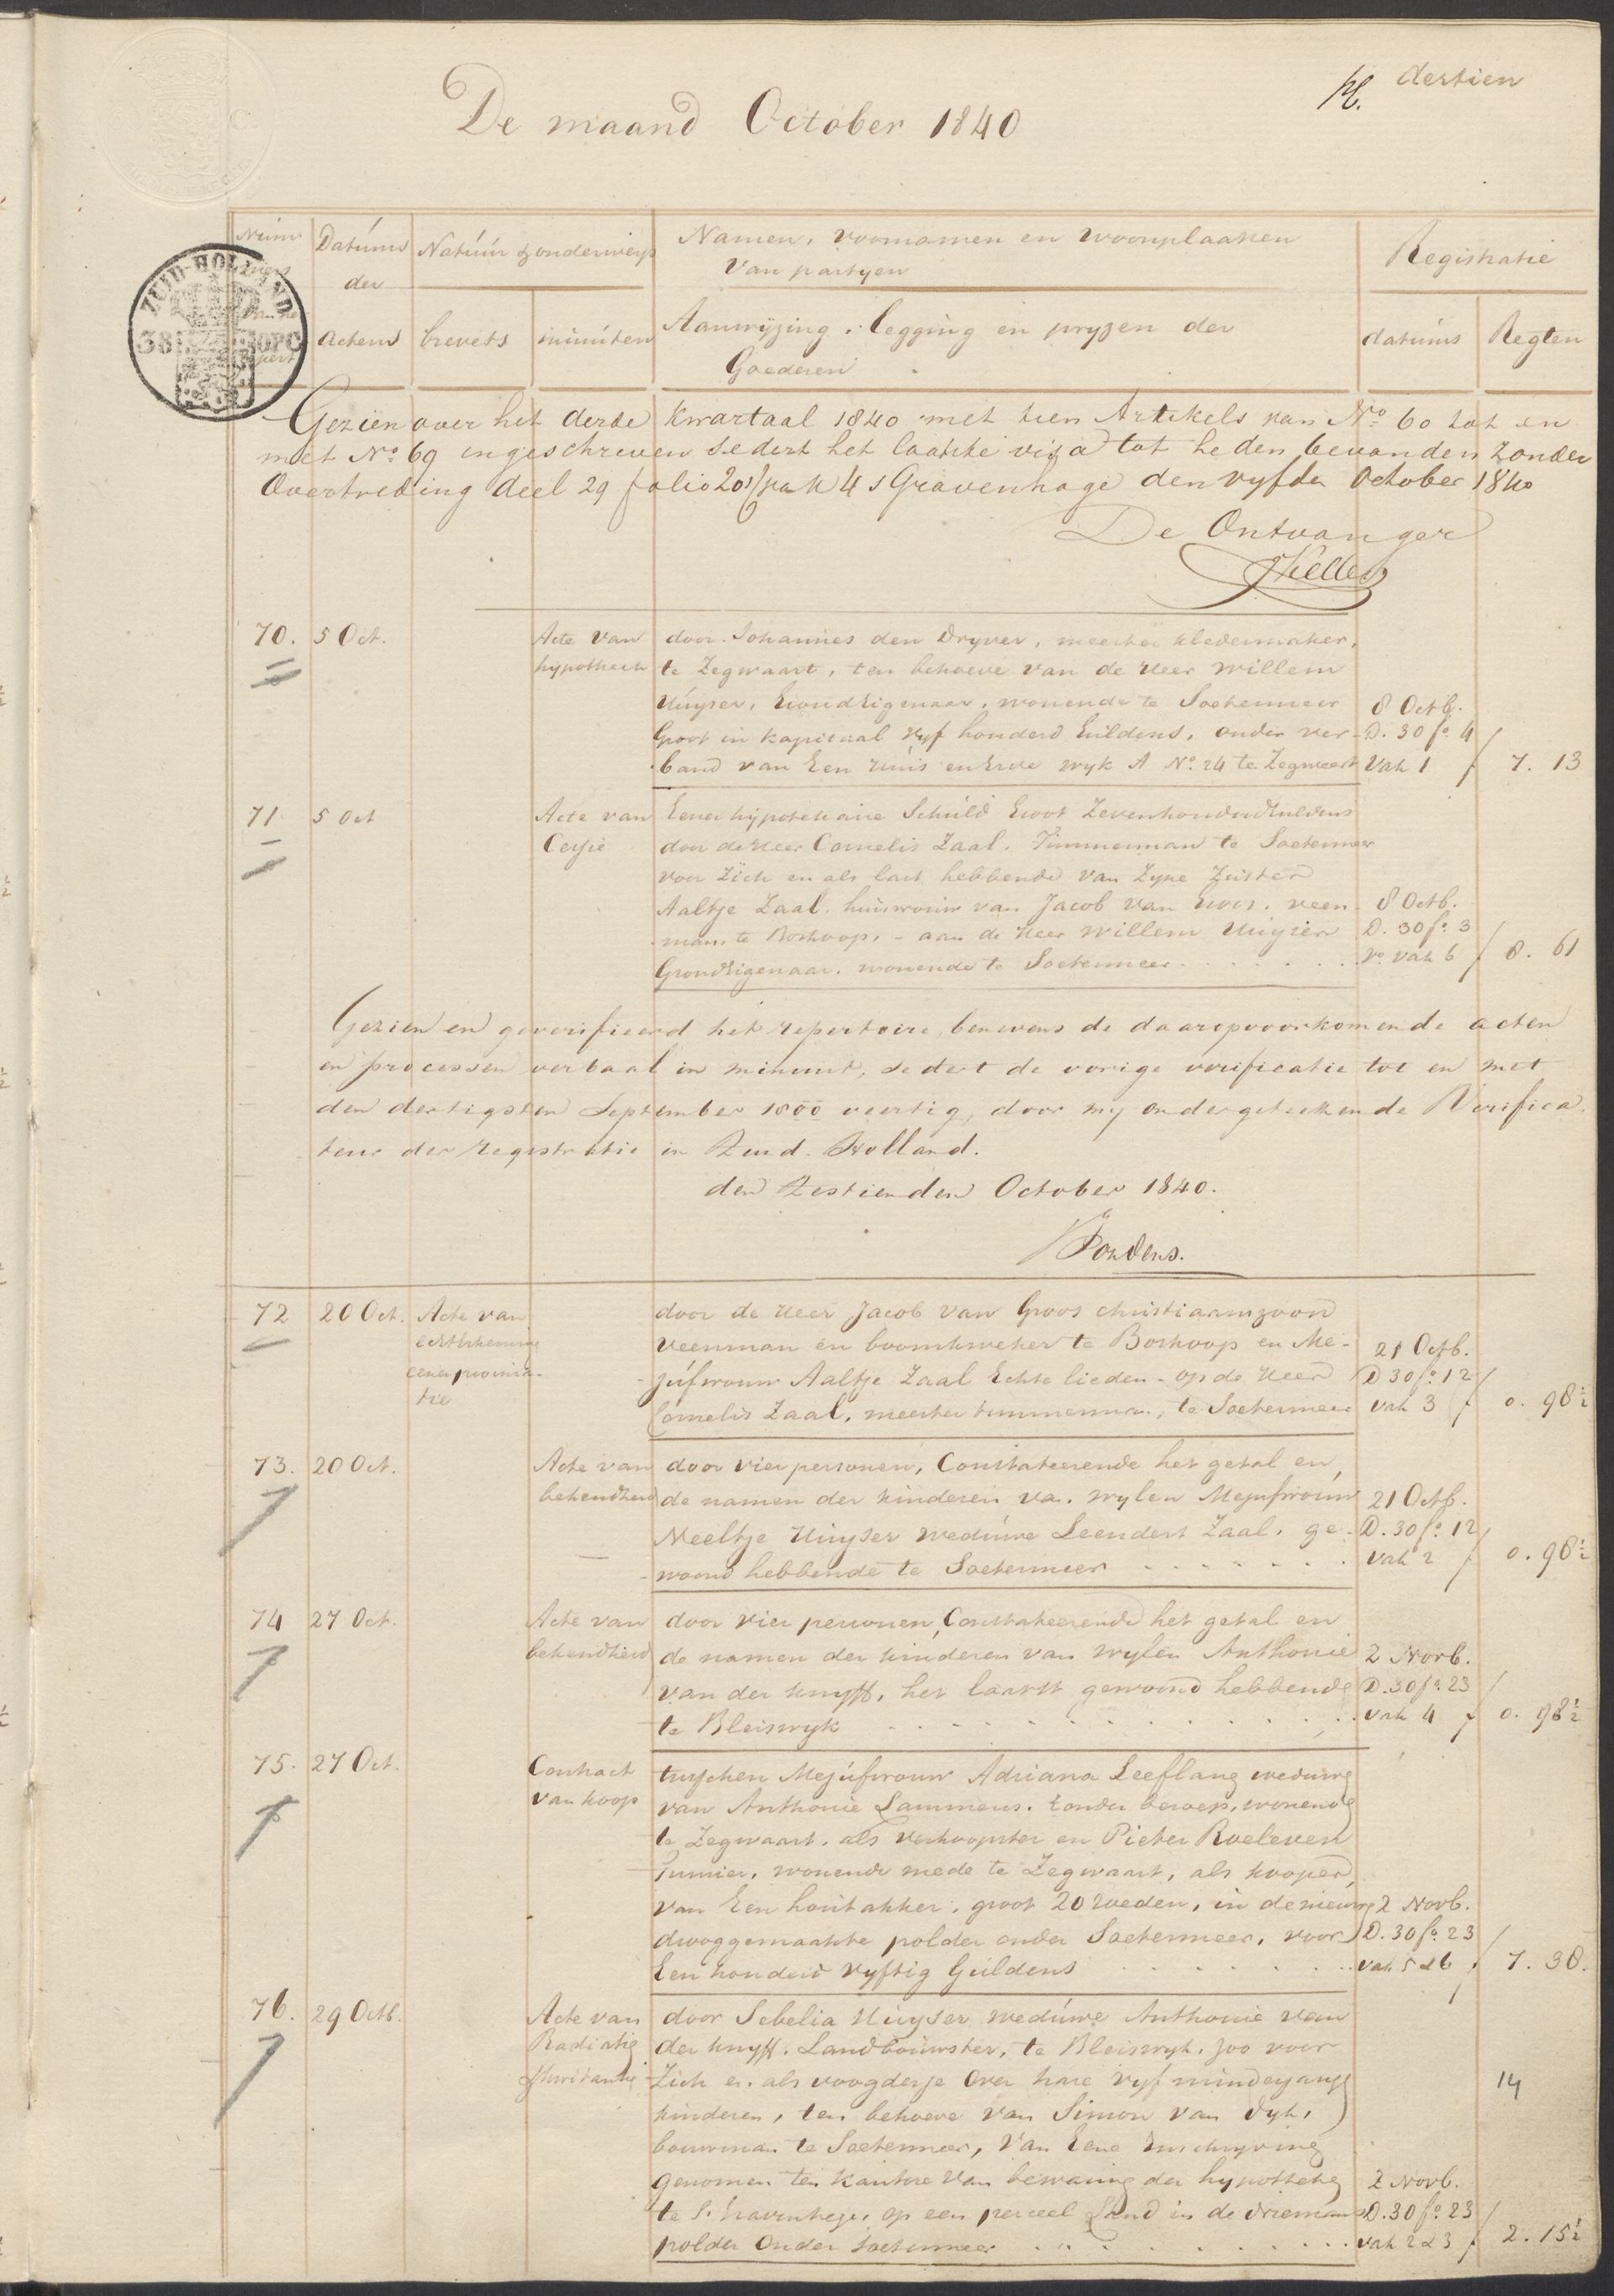 dertien
De maand October 1840
Datums der actens
Natuur & onderwerp
brevets
minuten
Namen, voornamen en woonplaatsen
van partyen
Aanwyzing, legging en pryzen der
Goederen
Registratie
datums
Regten
ZUID-HOLLAND
38 OPC
Gezien over het derde kwartaal 1840 met tien Artikels van No. 60 tot en
met No. 69 ingeschreven sedert het laatste visa tot heden bevonden zonder
Overtreding deel 29 folio 201 vak 4 s Gravenhage den vyfden October 1840
De Ontvanger
70. 5 Oct. Acte van door Johannes den Dryver, meester kledermaker,
hypotheek te Zegwaart, ten behoeve van de Heer Willem
Huyser, Grondeigenaar, wonende te Soetermeer 8 Octb.
Groot in kapitaal vyf honderd Guldens, onder ver- D. 30 fo. 4
band van Een Huis en Erve wyk A No. 24 te Zegwaart Vak 1 f 7. 13
71 5 Oct Acte van Eener hypotekaire Schuld Groot Zevenhonderd Guldens
Cessie door de Heer Cornelis Zaal, Timmerman te Soetermeer
voor Zich en als last hebbende van Zyne Zuster
Aaltje Zaal, huisvrouw van Jacob van Groos, veen- 8 Octb.
man, te Boskoop, - aan de Heer Willem Huyser D. 30 fo. 3
Grondeigenaar, wonende te Soetermeer vo. vak 6 f 8. 61
Gezien en geverifieerd het repertoire, benevens de daaropvoorkomende acten
en processen verbaal in minuut, sedert de vorige verificatie tot en met
den dertigsten September 1800 veertig, door my ondergeteekende Verifica-
teur der registratie in Zuid-Holland.
den Zestienden October 1840.
72 20 Oct. Acte van door de Heer Jacob van Groos Christiaanszoon
veenman en boomkweker te Boskoop en Me- 21 Octb.
eener procura- jufvrouw Aaltje Zaal Echte lieden - op de Heer D 30 fo. 12
tie Cornelis Zaal, meester timmerman, te Soetermeer vak 3 f 0. 98½
73. 20 Oct. Acte van door vier personen, Constateerende het getal en
bekendheid de namen der kinderen van wylen Mejufvrouw 21 Octb.
Neeltje Huyser weduwe Leendert Zaal, ge- D. 30 fo. 12
woond hebbende te Soetermeer vak 2 f 0. 98½
74 27 Oct. Acte van door vier personen, Constateerende het getal en
bekendheid de namen der kinderen van wylen Anthonie 2 Novb.
van der Knyff, het laatst gewoond hebbende D. 30 fo. 23
te Bleiswyk vak 4 f 0. 98½
75. 27 Oct. Contract tusschen Mejufvrouw Adriana Leeflang weduwe
van koop van Anthonie Lammens, zonder beroep, wonende
te Zegwaart, als verkoopster en Pieter Roeleven
Tuinier, wonende mede te Zegwaart, als kooper,
van Een houtakker, groot 20 roeden, in de nieuwe 2 Novb.
drooggemaakte polder onder Soetermeer, voor D. 30 fo. 23
Een honderd vyftig Guldens vak 5 & 6 f 7. 38.
76. 29 Octb. Acte van door Sebelia Huyser weduwe Anthonie van
Radiatie der Knyff, Landbouwster, te Bleiswyk, zoo voor
Zich en als voogdesse over hare vyf minderjarige 14
kinderen, ten behoeve van Simon van Dyk,
bouwman te Soetermeer, van Eene Inschryving
genomen ten kantore van bewaring der hypotheke 2 Novb.
te S. Gravenhage, op een perceel Land in de driemans D. 30 fo. 23
polder onder Soetermeer vak 2 & 3 f 2. 15½